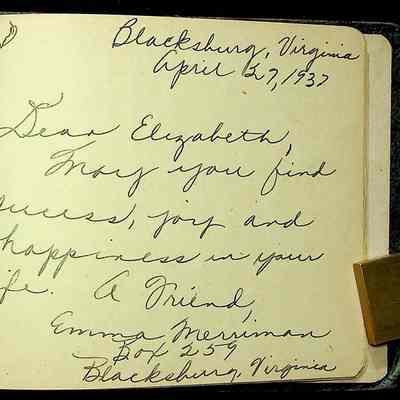 Blacksburg, Virginia
April 27, 1937
Dear Elizabeth,
May you find
success, joy and
happiness in your
life. A Friend,
Emma Merriman
Box 259
Blacksburg, Virginia